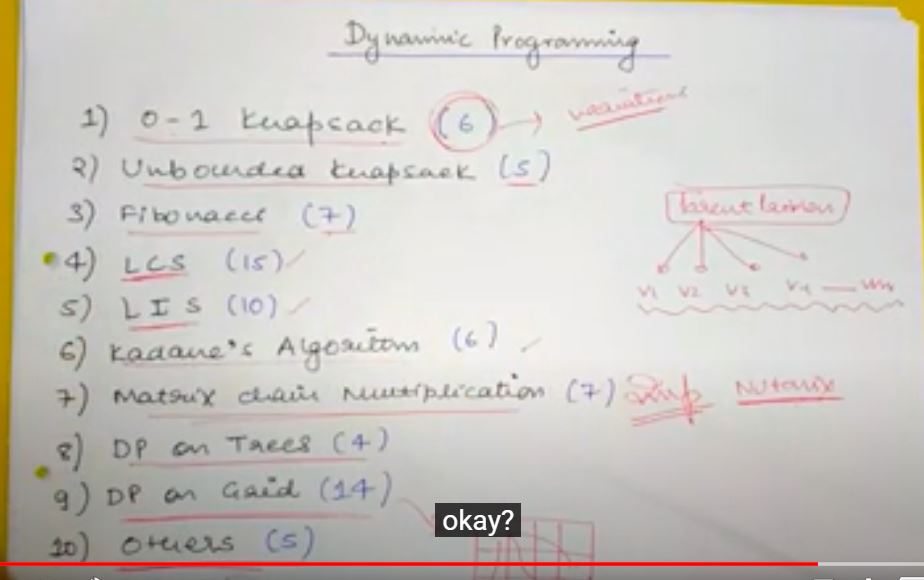 Dynamic Programming
1) 0-1 Knapsack (6) → variations
2) Unbounded Knapsack (5)
3) Fibonacci (7)
4) LCS (15)
5) LIS (10)
6) Kadane's Algorithm (6)
7) Matrix chain Multiplication (7) Imp
8) DP on Trees (4)
9) DP on Grid (14)
10) Others (5)
Parent
V1 V2 V3 V4
okay?